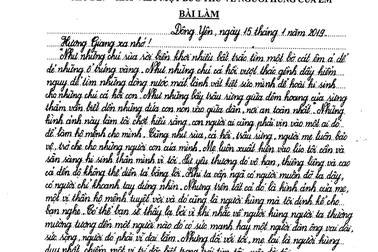 BÀI LÀM
Đông Yên, ngày 15 tháng 1 năm 2019
Hương Giang xa nhớ!
"Như những chú sùa rời biển khơi nhiều bất trắc, tìm một bờ cát êm ả để
đẻ những ổ trứng vàng. Như những chú cá hồi vượt thác ghềnh đầy hiểm
nguy để tìm những dòng nước mát lành vắt kiệt sức mình để hoài thai sinh
cho những chú cá hồi con. Như những bầy trâu rừng giữa đêm hoang của rừng
thẳm vẫn biết dồn những đứa con non vào giữa đàn, nơi an toàn nhất. Những
hình ảnh này làm tôi chợt hiểu rằng, con người ai cũng phải vin vào một ai đó
để làm hệ mệnh cho mình. Cũng như sùa, cá hồi, trâu rừng, người mẹ luôn bảo
vệ, trở che cho những người con của mình. Mẹ luôn xuất hiện vào lúc tôi cần và
sẵn sàng hi sinh thân mình vì tôi. Thứ yêu thương đó vô hạn, thiêng liêng và cao
cả đến độ không thể diễn tả bằng lời. Khi ta vấp ngã có người muốn đỡ ta dậy,
có người chỉ khoanh tay đứng nhìn. Nhưng trên tất cả đó là hình ảnh của mẹ,
một vị thần hộ mệnh tuyệt vời và đó cũng là người hùng mà tôi định kể cho
bạn nghe. Có thể bạn sẽ thấy lạ bởi vì khi nhắc về người hùng người ta thường
mường tượng đến một người nào đó có sức mạnh hay một người đàn ông vai dài,
sức rộng, người đó phải vĩ đại lắm. Nhưng đối với tôi, mẹ lại là người hùng